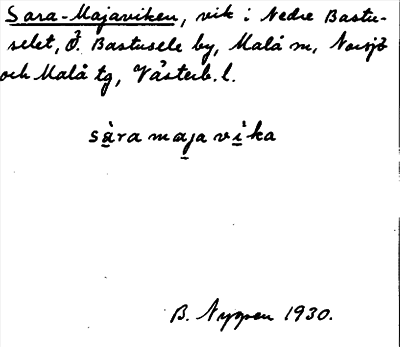 Sara-Majaviken, vik i Nedre Bastu-
selet, Ö. Bastusele by, Malå sn, Norsjö
och Malå tg, Västerb. l.
sàra maja vìka
B. Nyman 1930.